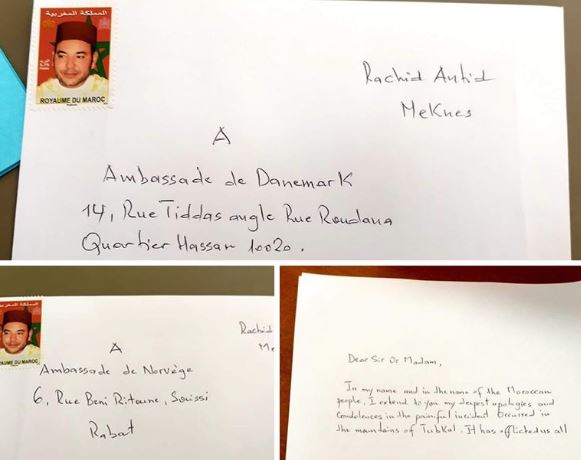 المملكة المغربية
ROYAUME DU MAROC
Rachid Antid
Meknes
A
Ambassade de Danemark
14, Rue Tiddas angle Rue Roudana
Quartier Hassan 10020.
Rachid
Me
A
Ambassade de Norvège
6, Rue Beni Ritoune, Souissi
Rabat
Dear Sir Or Madam,
In my name and in the name of the Moroccan
people, I extend to you my deepest apologies and
condolences in the painful incident occurred in
the mountains of Tubkal. It has afflicted us all